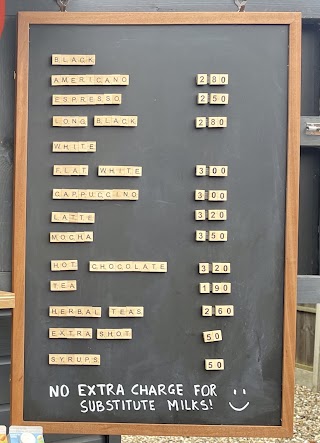 BLACK
AMERICANO 2 80
ESPRESSO 2 50
LONG BLACK 2 80
WHITE
FLAT WHITE 3 00
CAPPUCCINO 3 00
LATTE 3 20
MOCHA 3 50
HOT CHOCOLATE 3 20
TEA 1 90
HERBAL TEAS 2 60
EXTRA SHOT 50
SYRUPS 50
NO EXTRA CHARGE FOR
SUBSTITUTE MILKS!